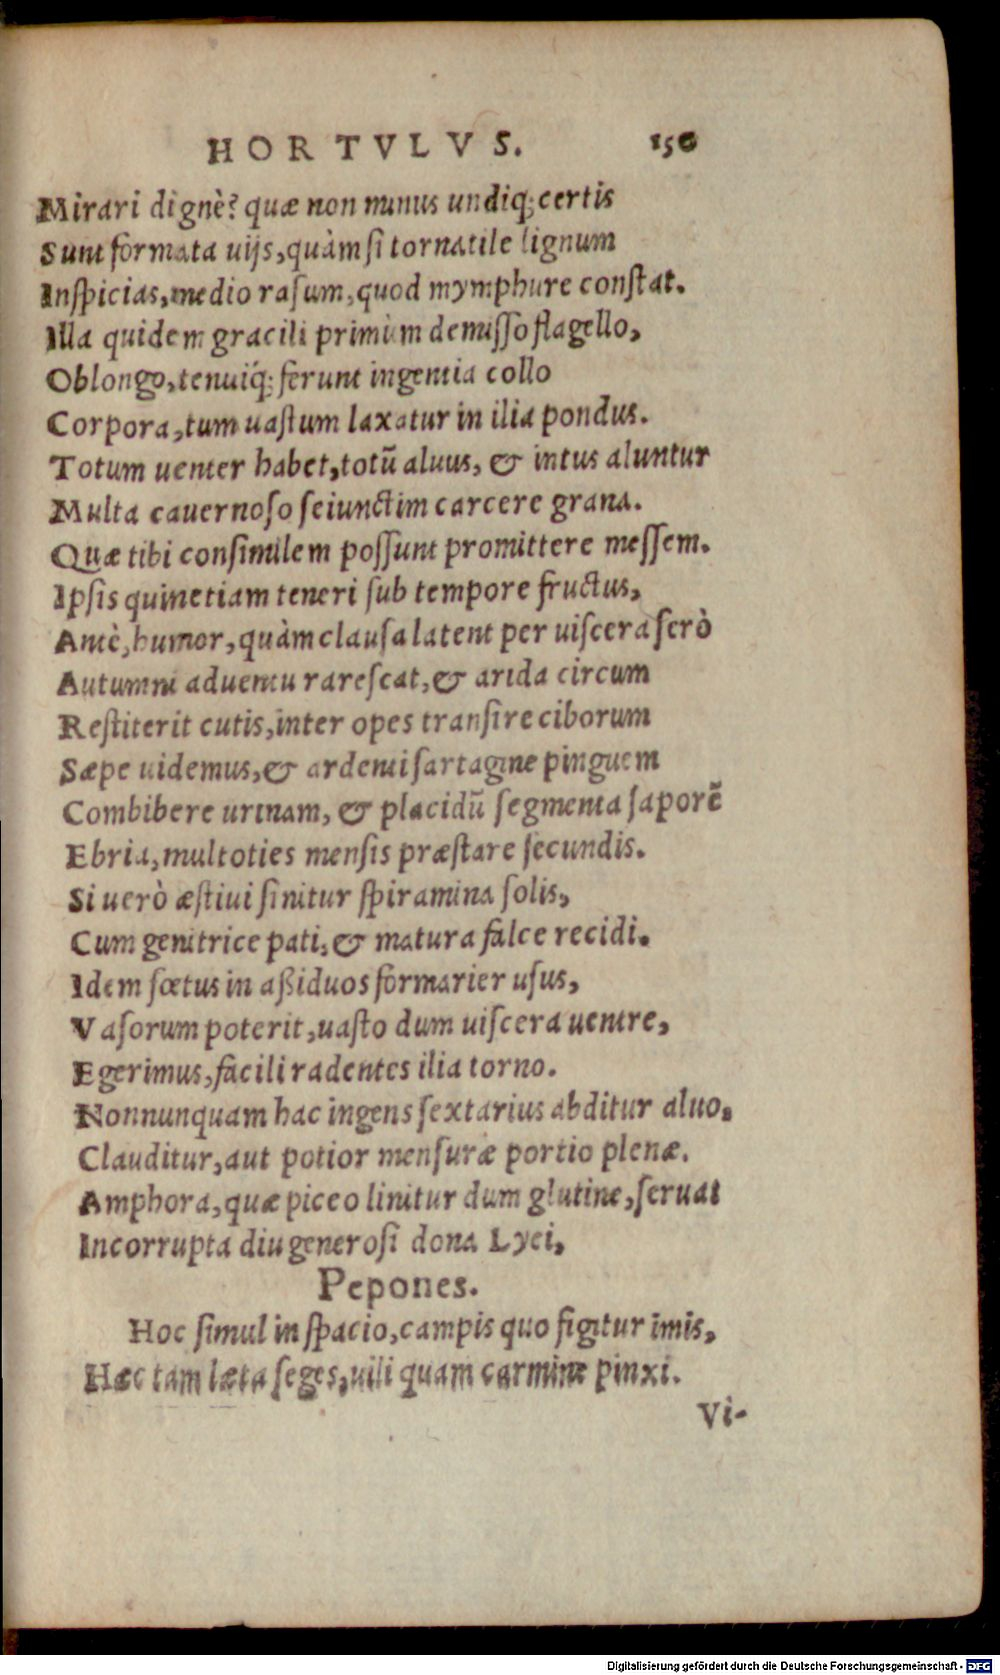 HORTVLVS. 150
Mirari dignè? quæ non minus undiq; certis
Sunt formata uijs, quàm si tornatile lignum
Inspicias, medio rasum, quod mymphure constat.
Illa quidem gracili primùm demisso flagello,
Oblongo, tenuiq́; ferunt ingentia collo
Corpora, tum uastum laxatur in ilia pondus.
Totum uenter habet, totũ aluus, & intus aluntur
Multa cauernoso seiunctim carcere grana.
Quæ tibi consimilem possunt promittere messem.
Ipsis quinetiam teneri sub tempore fructus,
Antè, humor, quàm clausa latent per uiscera serò
Autumni aduentu rarescat, & arida circum
Restiterit cutis, inter opes transire ciborum
Sæpe uidemus, & ardenti sartagine pinguem
Combibere urinam, & placidũ segmenta saporẽ
Ebria, multoties mensis præstare secundis.
Si uerò æstiui sinitur spiramina solis,
Cum genitrice pati, & matura falce recidi.
Idem fœtus in aßiduos formarier usus,
Vasorum poterit, uasto dum uiscera uentre,
Egerimus, facili radentes ilia torno.
Nonnunquam hac ingens sextarius abditur aluo,
Clauditur, aut potior mensuræ portio plenæ.
Amphora, quæ piceo linitur dum glutine, seruat
Incorrupta diu generosi dona Lyei,
Pepones.
Hoc simul in spacio, campis quo figitur imis,
Hæc tam læta seges, uili quam carmine pinxi.
Vi-
Digitalisierung gefördert durch die Deutsche Forschungsgemeinschaft - DFG